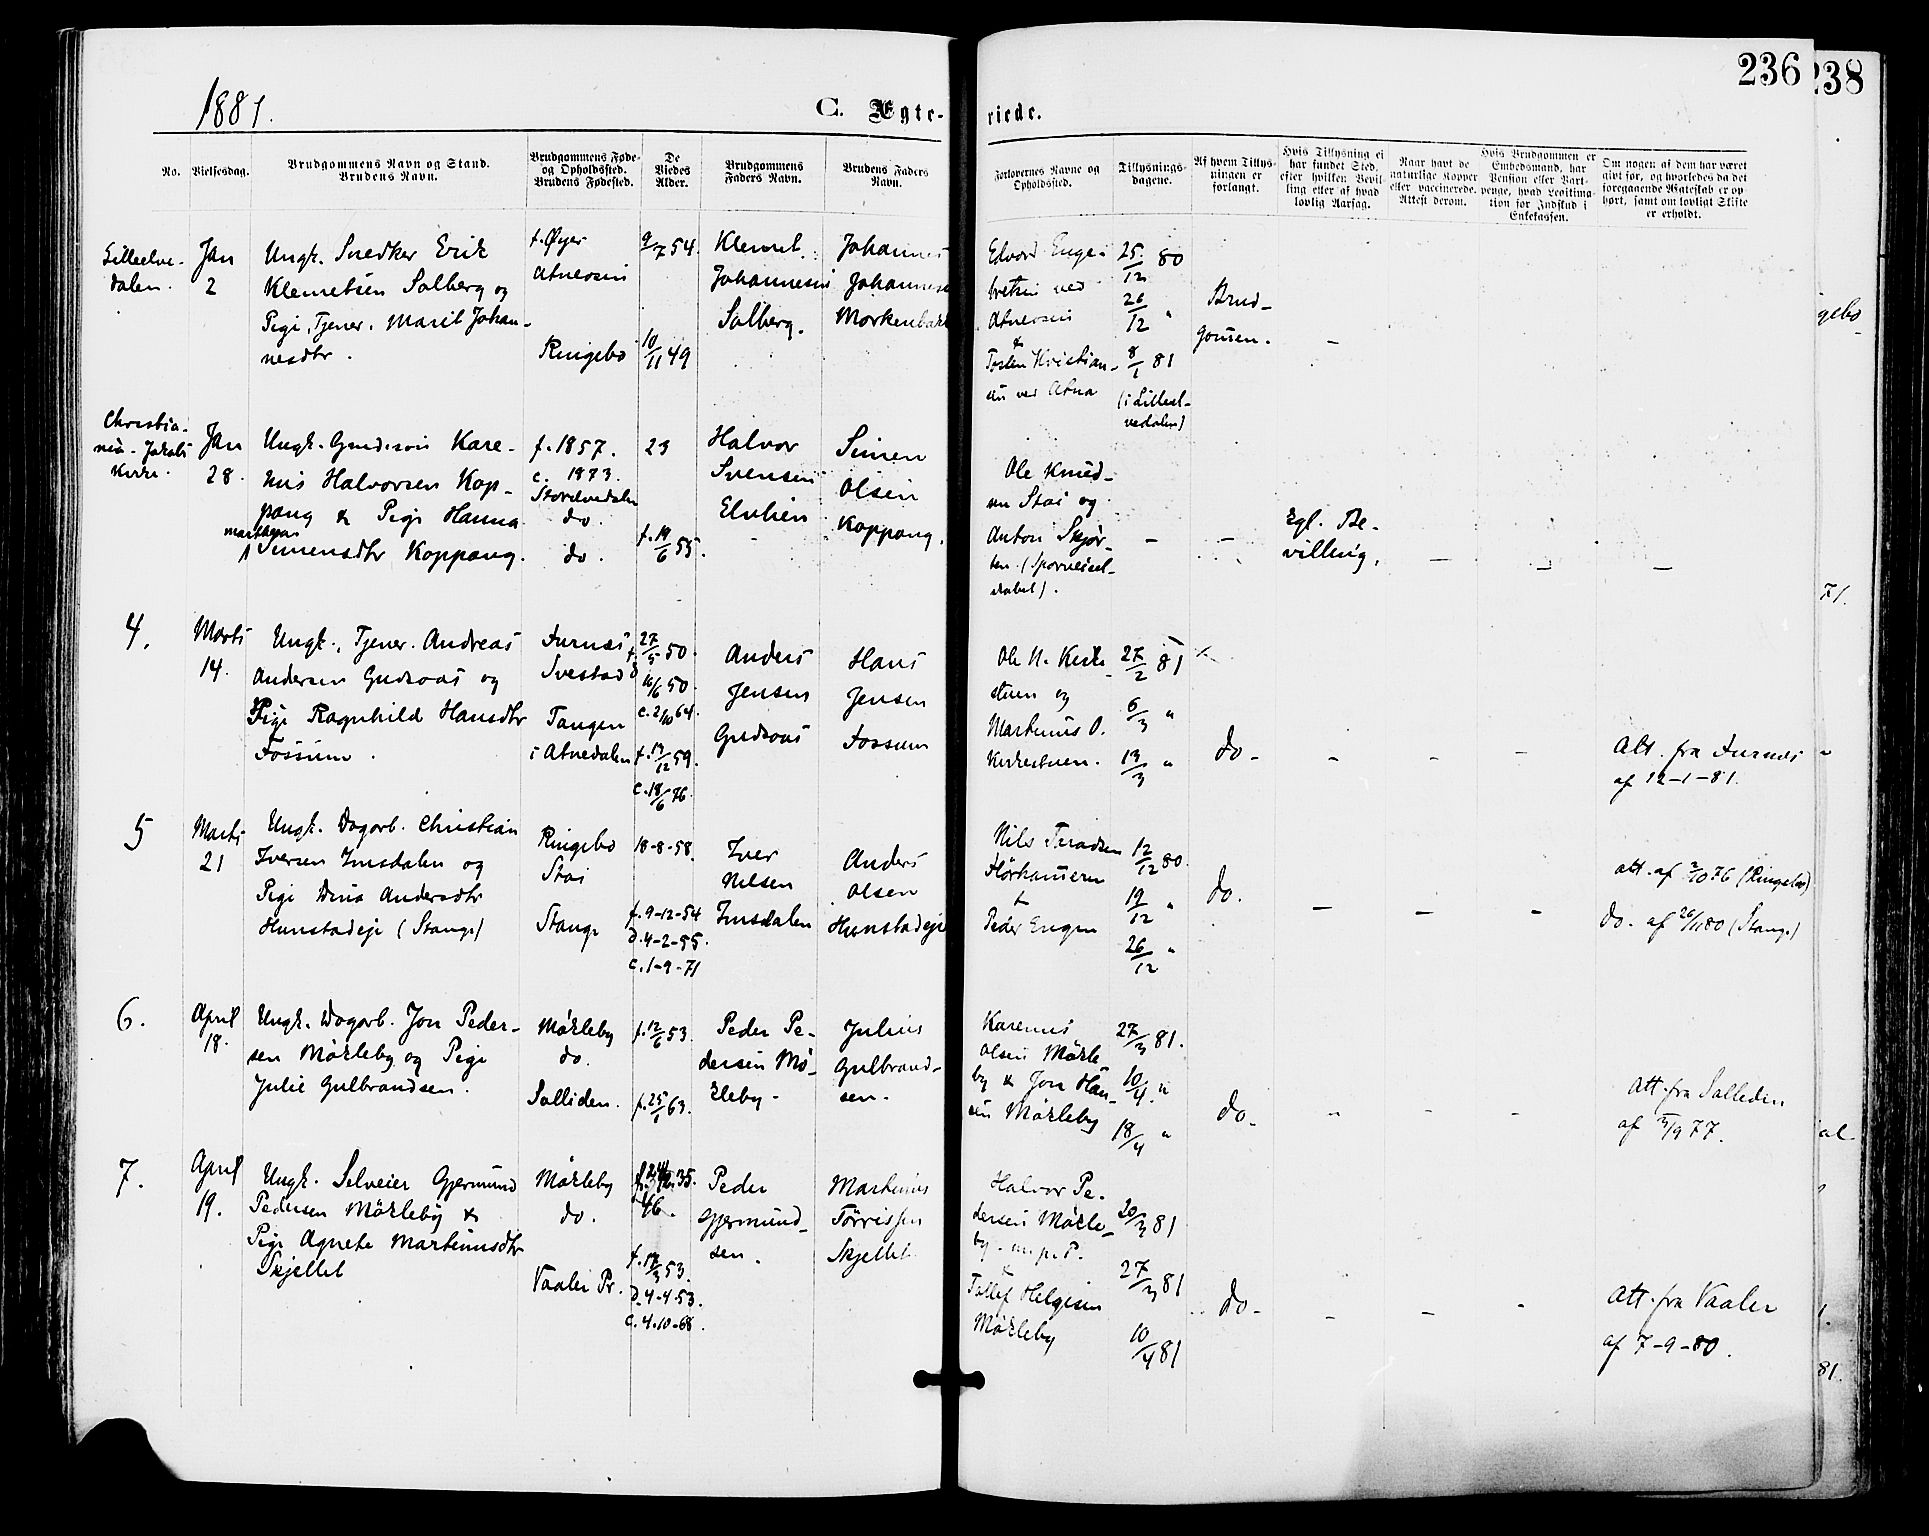 236
238
1881.
C. Ægte-
viede.
No.
Vielsesdag.
Brudgommens Navn og Stand.
Brudens Navn.
Brudgommens Føde-
og Opholdssted.
Brudens Fødested.
De
Viedes
Alder.
Brudgommens
Faders Navn.
Brudens Faders
Navn.
Forlovernes Navne og
Opholdssted.
Tillysnings-
dagene.
Af hvem Tillys-
ningen er
forlangt.
Hvis Tillysning ei
har fundet Sted,
efter hvilken Bevil-
ling eller af hvad
lovlig Aarsag.
Naar havt de
naturlige Kopper
eller vaccinerede.
Attest derom.
Hvis Brudgommen er
Embedsmand, har
Pension eller Vart-
penge, hvad Legitima-
tion for Indskud i
Enkekassen.
Om nogen af dem har været
givt før, og hvorledes da det
foregaaende Ægteskab er op-
hørt, samt om lovligt Skifte
er erholdt.
Lilleelve-
dalen.
Jan
2
Ungk. Snedker Erik
Klemetsen Solberg og
Pige, Tjener. Marit Johan-
nesdtr.
f. Øyer
Atneosen
Ringebo
9/7 54.
10/11 49
Klemet
Johannesen
Solberg.
Johannes
Johannesen
Morkenbakk
Edvard Enge-
bretsen ved
Atneosen
&
Torsten Kristian-
sen ved Atna
25/12 80
26/12 "
8/1 81
(i Lilleel-
vedalen)
Brud-
gomen.
-
Christia-
nia - Jakobs
Kirke.
Jan
28.
Ungk. Gaardsøn Kare-
nus Halvorsen Kop-
pang & Pige Hanna
Marthea
Simensdtr Koppang.
f. 1857.
c. 1873.
Storelvedalen
do.
do.
23
f. 19/6 55.
Halvor
Svensen
Elvlien
Simen
Olsen
Koppang.
Ole Knud-
sen Stai og
Anton Skjør-
ten (Sporveissel-
skabet).
-
-
Kgl. Be-
villing.
-
-
-
4.
Marts
14.
Ungk., Tjener. Andreas
Andersen Gudraas og
Pige Ragnhild Hansdtr
Fossum.
Furnæs
Svestad
Tangen
i Atnedalen
f. 27/5 50.
d. 16/6 50.
c. 2/10 64.
f. 13/12 59.
c. 18/6 76.
Anders
Jensen
Gudraas
Hans
Jensen
Fossum
Ole N. Kirke-
stuen og
Martinus O.
Kirkestuen.
27/2 81
6/3 "
13/3 "
do.
-
-
-
Att. fra Furnæs
af 12-1-81.
5
Marts
21
Ungk. Dagarb. Christian
Iversen Imsdalen og
Pige Dina Andersdtr
Hunstadeje (Stange)
Ringebo
Stai
Stange
18-8-58.
f. 9-12-54
d. 4-2-55.
c. 1-9-71
Iver
Nilsen
Imsdalen
Anders
Olsen
Hunstadeje
Peder Engen
12/12 80.
19/12 "
26/12 "
do.
-
-
-
att. af 2/10 76 (Ringebo)
do. af 26/11 80 (Stange)
6.
April
18.
Ungk. Dagarb. Jon Peder-
sen Mökleby og Pige
Julie Gulbrandsen.
Mökleby
do.
Solliden.
f. 12/6 53.
f. 25/1 63.
Peder Pe-
dersen Mö-
kleby.
Julius
Gulbrand-
sen.
Karenus
Olsen Mökle-
by & Jon Han-
sen Mökleby
27/3 81.
10/4 "
18/4 "
do.
"
-
-
Att. fra Solleden
af 5/9 77.
7.
April
19.
Ungk. Selveier Gjermund
Pedersen Mökleby &
Pige Agnete Martinusdtr
Skjellet
Mökleby
do.
Vaaler Pr.
46.
f. 17/3 53.
d. 4-4-53.
c. 4-10-68.
Peder
Gjermund-
sen.
Martinus
Törrissen
Skjellet
Halvor Pe-
dersen Mökle-
by
&
Tollef Helgesen
Mökleby
20/3 81
27/3 81
10/4 81
do.
-
-
-
Att. fra Vaaler
af 7-9-80.
gebo
71.
al
81.